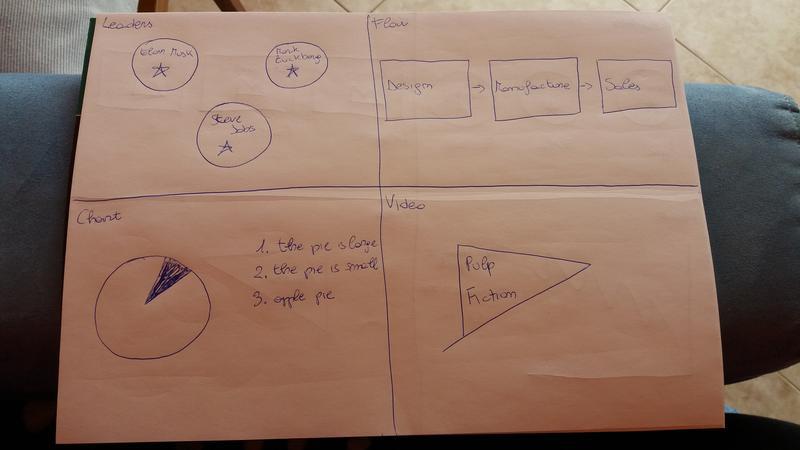 Leaders
Elon Musk
Mark
Zuckberg
Steve
Jobs
Flow
Design
Manufacture
Sales
Chart
1. the pie is large
2. the pie is small
3. apple pie
Video
Pulp
Fiction